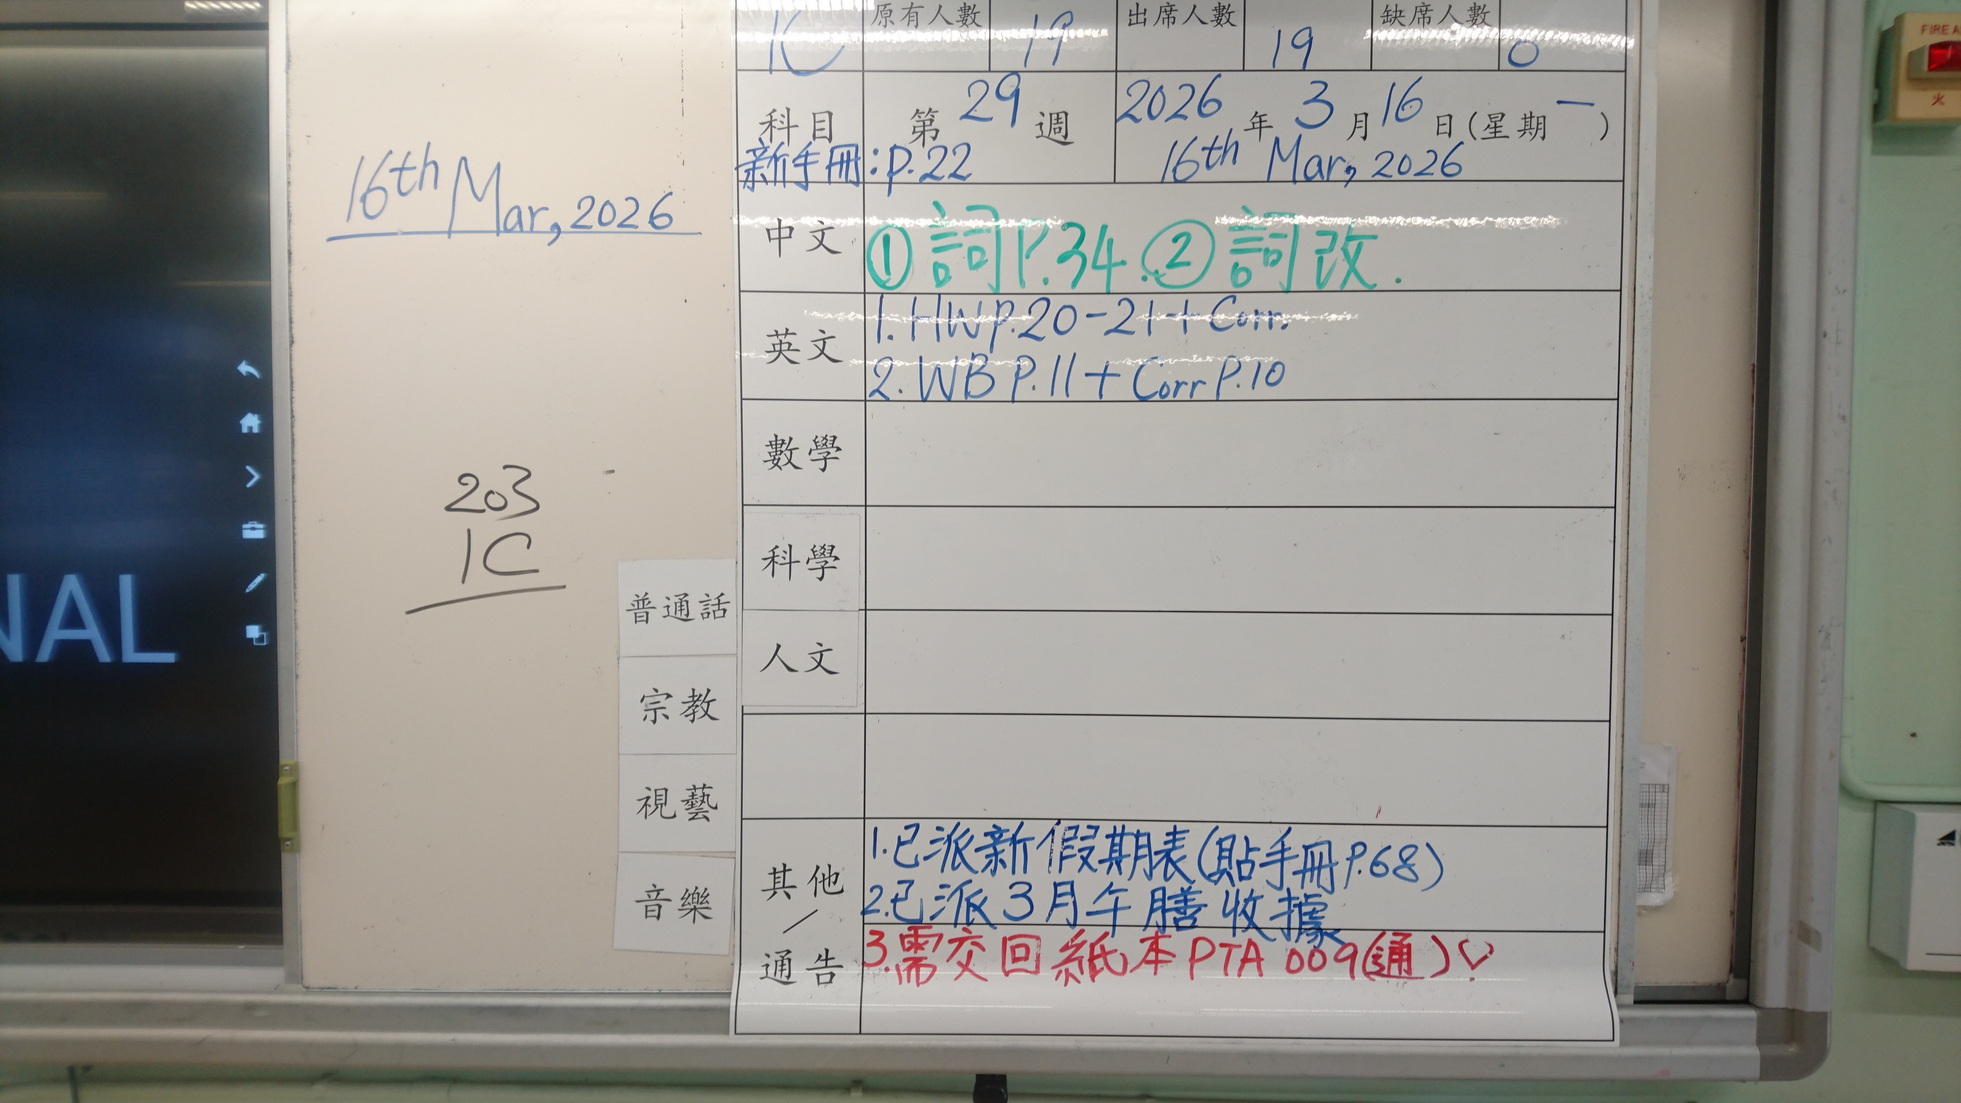 1C 原有人數 19 出席人數 19 缺席人數 0
科目 第29週 2026年3月16日(星期一)
新手冊:p.22 16th Mar, 2026
16th Mar, 2026
中文 ①詞P.34.②詞改.
英文 1. HW P.20-21+Corr.
2. WB P.11+Corr P.10
數學
203
1C
科學
普通話
人文
宗教
視藝
音樂
其他/通告
1.已派新假期表(貼手冊P.68)
2.已派3月午膳收據
3.需交回紙本PTA 009(通)
NAL
FIRE A
火